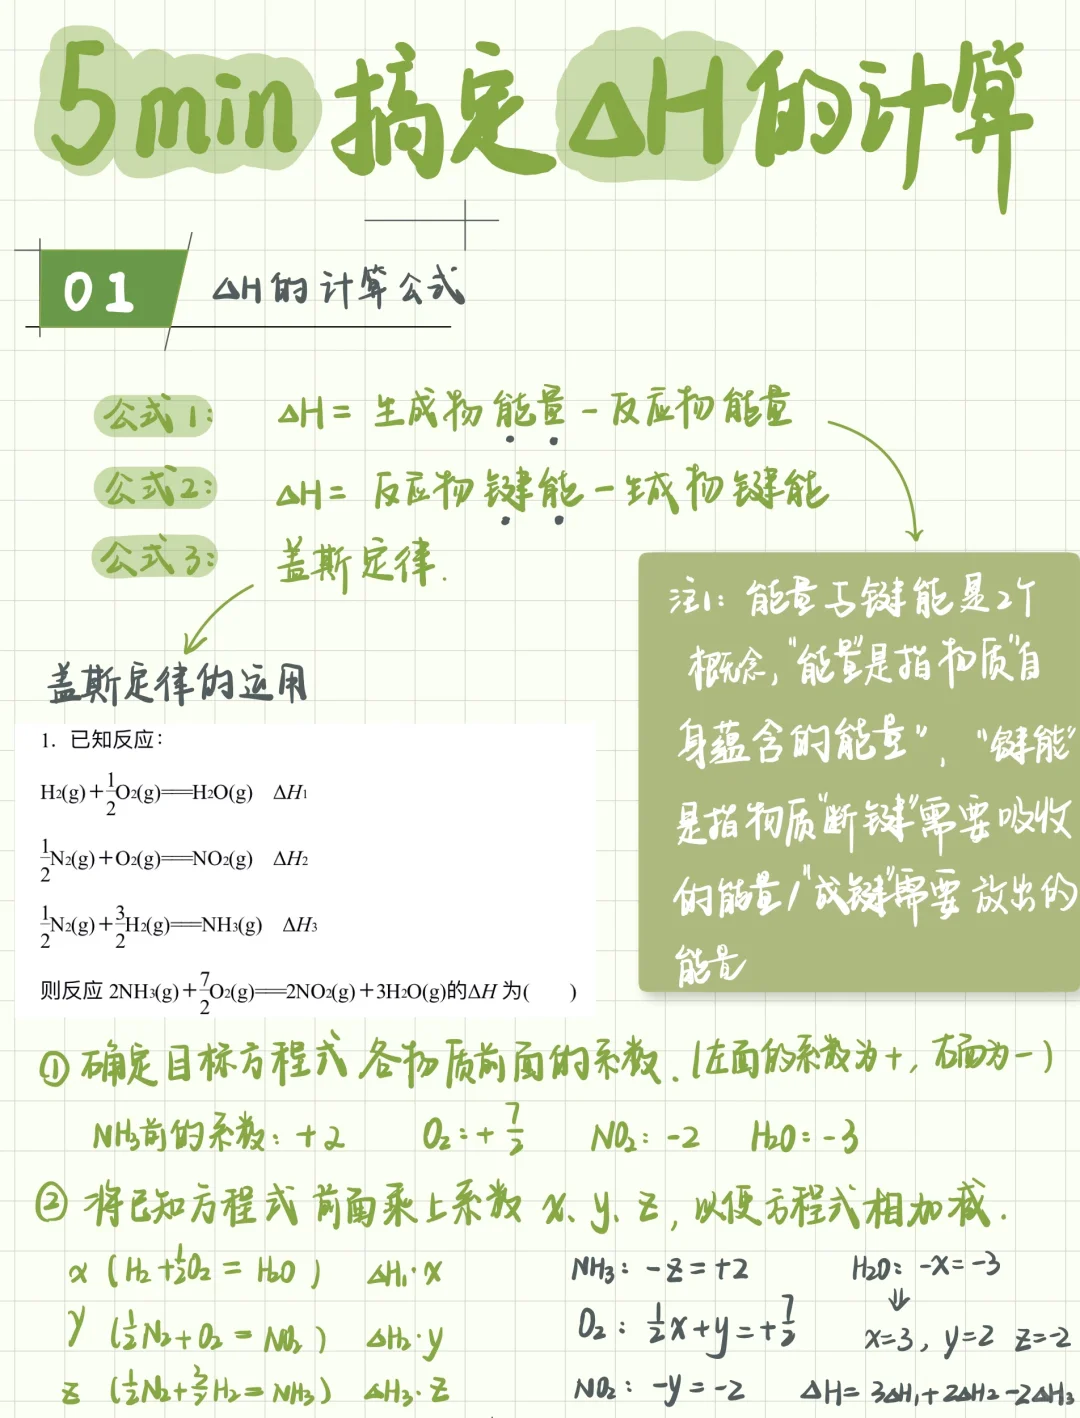 5min 搞定 △H的计算
01 △H的计算公式
公式1: △H = 生成物能量 - 反应物能量
公式2: △H = 反应物键能 - 生成物键能
公式3: 盖斯定律.
注1: 能量与键能是2个
概念,"能量"是指物质"自
身蕴含的能量", "键能"
是指物质"断键"需要吸收
的能量/"成键"需要放出的
能量
盖斯定律的运用
1. 已知反应：
H₂(g)+1/2O₂(g)===H₂O(g) ΔH₁
1/2N₂(g)+O₂(g)===NO₂(g) ΔH₂
1/2N₂(g)+3/2H₂(g)===NH₃(g) ΔH₃
则反应 2NH₃(g)+7/2O₂(g)===2NO₂(g)+3H₂O(g)的ΔH 为( )
① 确定目标方程式各物质前面的系数.(左面的系数为+, 右面为-)
NH₃前的系数: +2 O₂: +7/2 NO₂: -2 H₂O: -3
② 将已知方程式前面乘上系数 x、y、z, 以便方程式相加减.
x (H₂+1/2O₂ = H₂O) △H₁·x
y (1/2N₂+O₂ = NO₂) △H₂·y
z (1/2N₂+3/2H₂ = NH₃) △H₃·z
NH₃: -z = +2
O₂: 1/2x+y = +7/2
NO₂: -y = -2
H₂O: -x = -3
⇓
x=3, y=2 z=-2
△H = 3△H₁+2△H₂-2△H₃